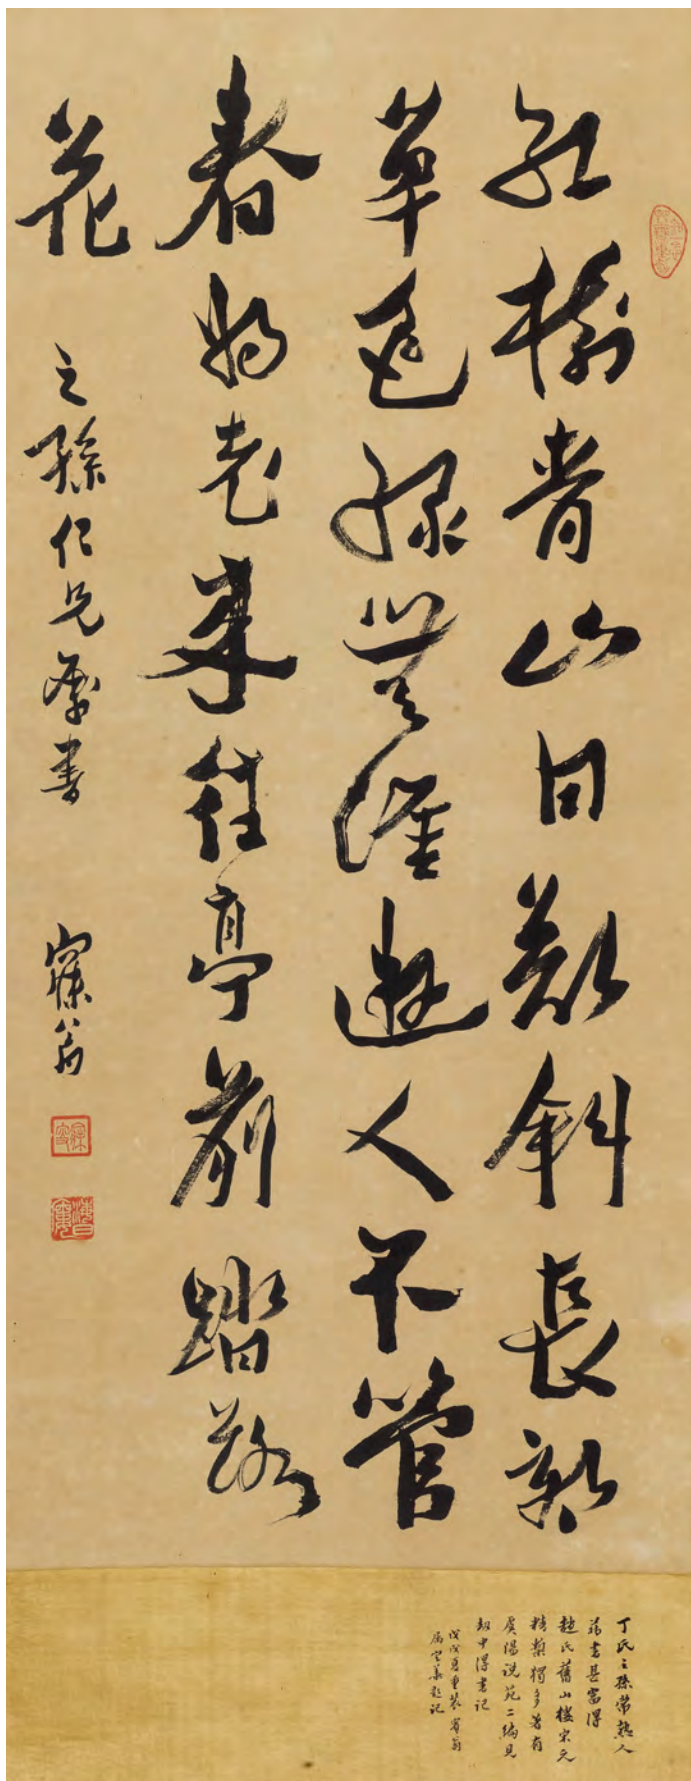 紅樹青山日欲斜長郊
草色綠無涯遊人不管
春將老來往亭前踏落
花
之孫仁兄屬書
寐翁
丁氏之孫常熟人
藏書甚富得
趙氏舊山樓宋元
精槧獨多著有
虞陽說苑二編見
劫中得書記
戊戌夏重裝
題記